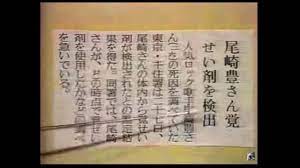 尾崎豊さん覚
せい剤を検出
人気ロック歌手
の死因を調べていた
東京・千住署は二十七日、
尾崎さんの体内から覚せい
剤が検出されたとの鑑定結
果を得た。同署では、尾崎
さんが、どの時点で覚せい
剤を使用したかなど
を急いでいる。